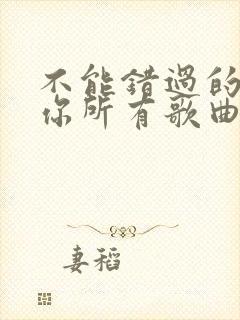 不能错过的
你所有歌曲
妻稻